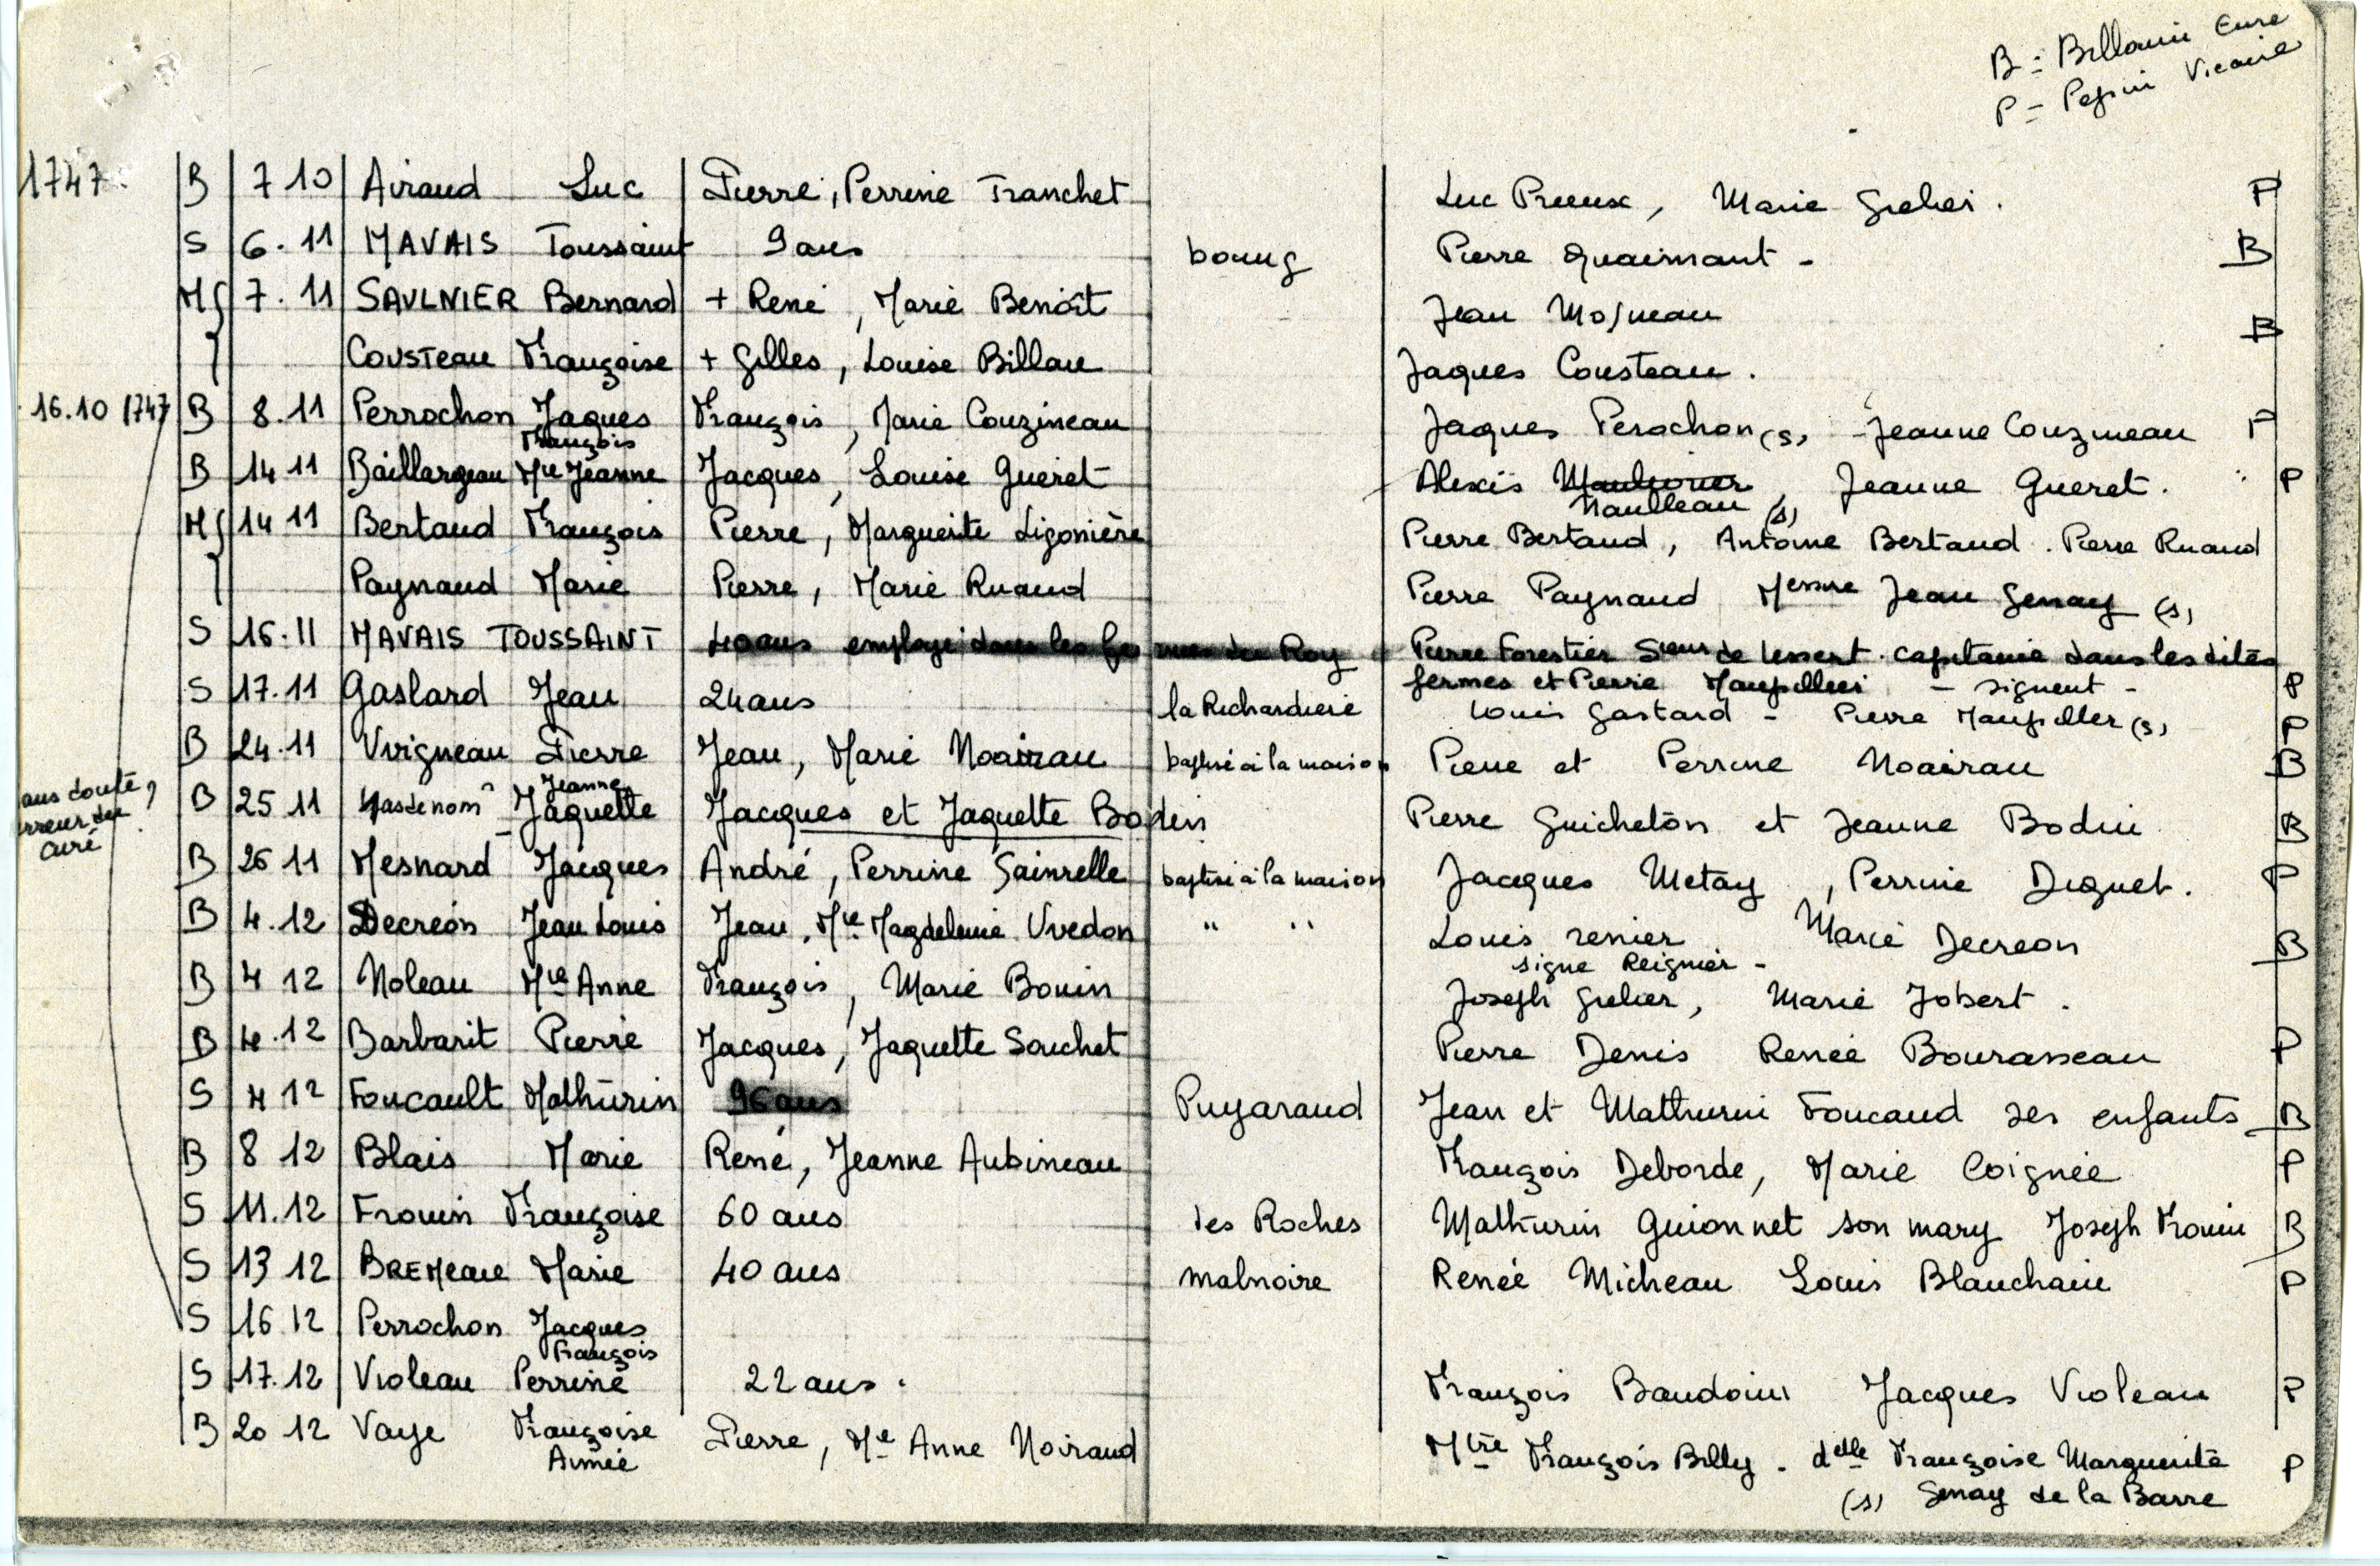 B = Billouin Cure
P = Pepin Vicaire
1747 B 7 10 Airaud Luc Pierre, Perrine Tranchet Luc Preeux, Marie Grelier. P
S 6.11 MAVAIS Toussaint 9 ans bourg Pierre Guaimant - B
M{ 7.11 SAULNIER Bernard + René, Marie Benoît Jean Mosneau B
} COUSTEAU Françoise + Gilles, Louise Billau Jaques Cousteau.
16.10 1747 B 8.11 Perrochon Jaques François François, Marie Couzineau Jaques Perochon (s) - Jeanne Couzineau P
B 14 11 Baillargeau Mie Jeanne Jacques, Louise Gueret Alexis Naulleau (s), Jeanne Gueret. P
M{ 14 11 Bertaud François Pierre, Marguerite Ligonière Pierre Bertaud, Antoine Bertaud. Pierre Ruaud
} Paynaud Marie Pierre, Marie Ruaud Pierre Paynaud Messire Jean Genay (s)
S 16.11 MAVAIS TOUSSAINT 40 ans employé dans les fermes du Roy Pierre Forestier Sieur de Lessert. capitaine dans les dites
fermes et Pierre Maupillier - signent - P
S 17.11 Gaslard Jean 24 ans la Richardiere Louis Gastard - Pierre Maupiller (s) P
B 24.11 Vrigneau Pierre Jean, Marie Noairau baptisé à la maison Pierre et Perrine Noairau B
sans doute erreur du curé ? B 25 11 pas de nom Jeanne Jaquette Jacques et Jaquette Bodin Pierre Guicheton et Jeanne Bodin B
B 26 11 Mesnard Jacques André, Perrine Sainrelle baptisé à la maison Jacques Metay, Perrine Diguet. P
B 4.12 Decreon Jean Louis Jean, Mie Magdeleine Vredon " " Louis renier Marie Decreon B
signe Reignier -
B 4 12 Noleau Mie Anne François, Marie Bouin Joseph Grelier, Marie Jobert.
B 4.12 Barbarit Pierre Jacques, Jaquette Souchet Pierre Denis Renée Bourasseau P
S 4 12 Foucault Mathurin 96 ans Puyaraud Jean et Mathurin Foucaud ses enfants B
B 8 12 Blais Marie René, Jeanne Aubineau François Deborde, Marie Coignée P
S 11.12 Frouin Françoise 60 ans les Roches Mathurin Guionnet son mary Joseph Frouin B
S 13 12 BREMeau Marie 40 ans malnoire Renée Micheau Louis Blanchain P
S 16 12 Perrochon Jacques François
S 17.12 Violeau Perrine 22 ans. François Baudouin Jacques Violeau P
B 20 12 Vaye Françoise Aimée Pierre, Me Anne Noiraud Mtre François Billy. delle Françoise Marguerite P
(s) Genay de la Barre